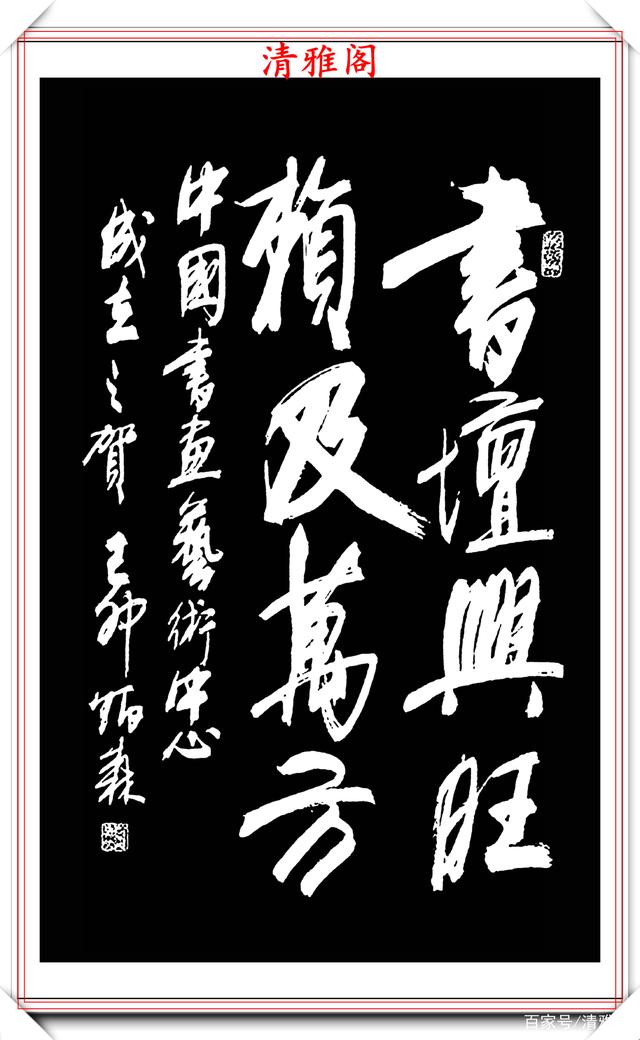 清雅阁
書壇興旺
賴及萬方
中國書畫藝術中心
成立之賀 己卯 炳森
百家号/清雅